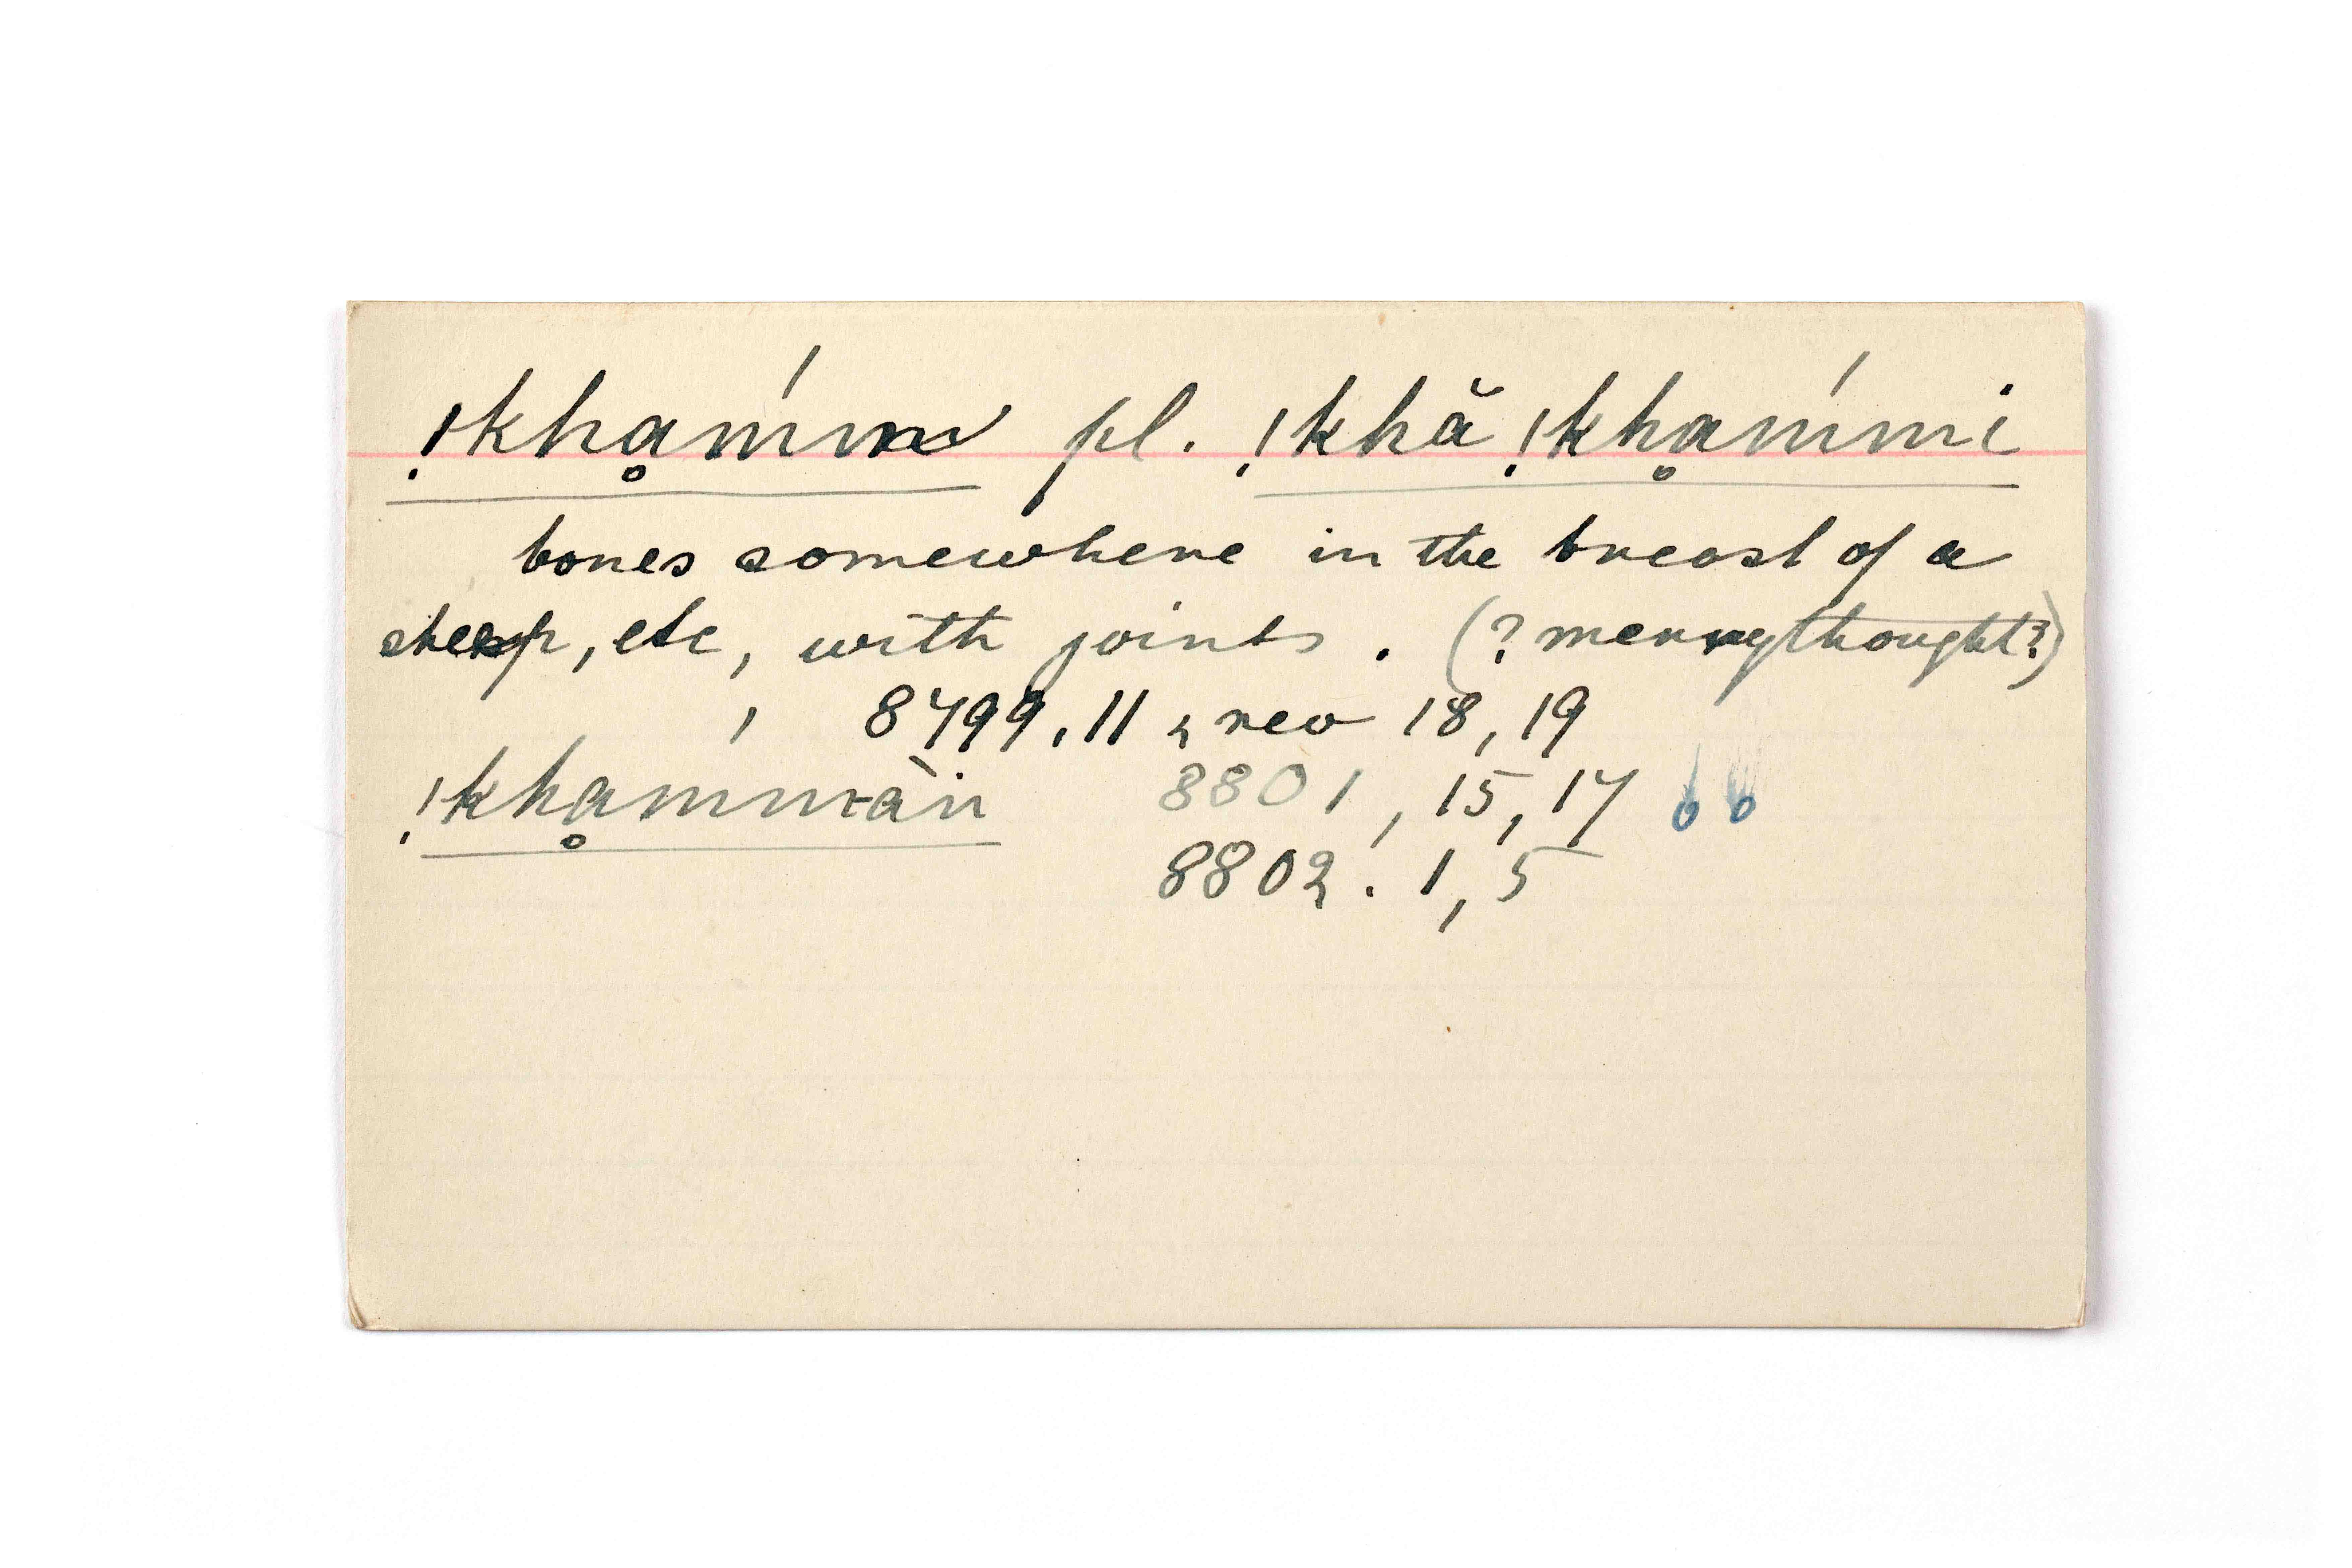 !khḁḿm pl. !khă !khḁḿmi
bones somewhere in the breast of a
sheep, etc, with joints. (? merrythought?)
8799.11 & rev 18, 19
!khḁḿm-àn 8801, 15, 17
8802. 1, 5